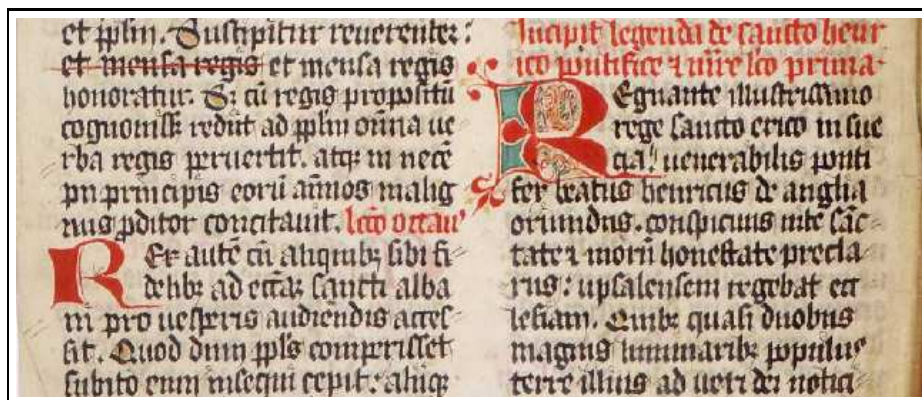 et pplm. Suscipitur reuerenter:
et mensa regis et mensa regis
honoratur. Sz cū regis propositū
cognouisset redut ad pplm omnia ue
rba regis peruertit. atqz in necē
pii principis eorū animos malig
nus pditor concitauit. lcō octaua
Rex autē cū aliquibz sibi fi
delibz ad ecclam sancti alba
ni pro uesperis audiendis acces
sit. Quod dum ppls comperisset
subito eum insequi cepit. aliiqz
Incipit legenda de sancto henr
ico pontifice et mre lco prima
Regnante illustrissimo
rege sancto erico in sue
cia. uenerabilis ponti
fex beatus henricus de anglia
oriundus. conspicuus uite sāc
tate et morū honestate precla
rus: upsalensem regebat ecc
lesiam. Quibz quasi duobus
magnis luminaribz populus
terre illius ad ueri dei notici